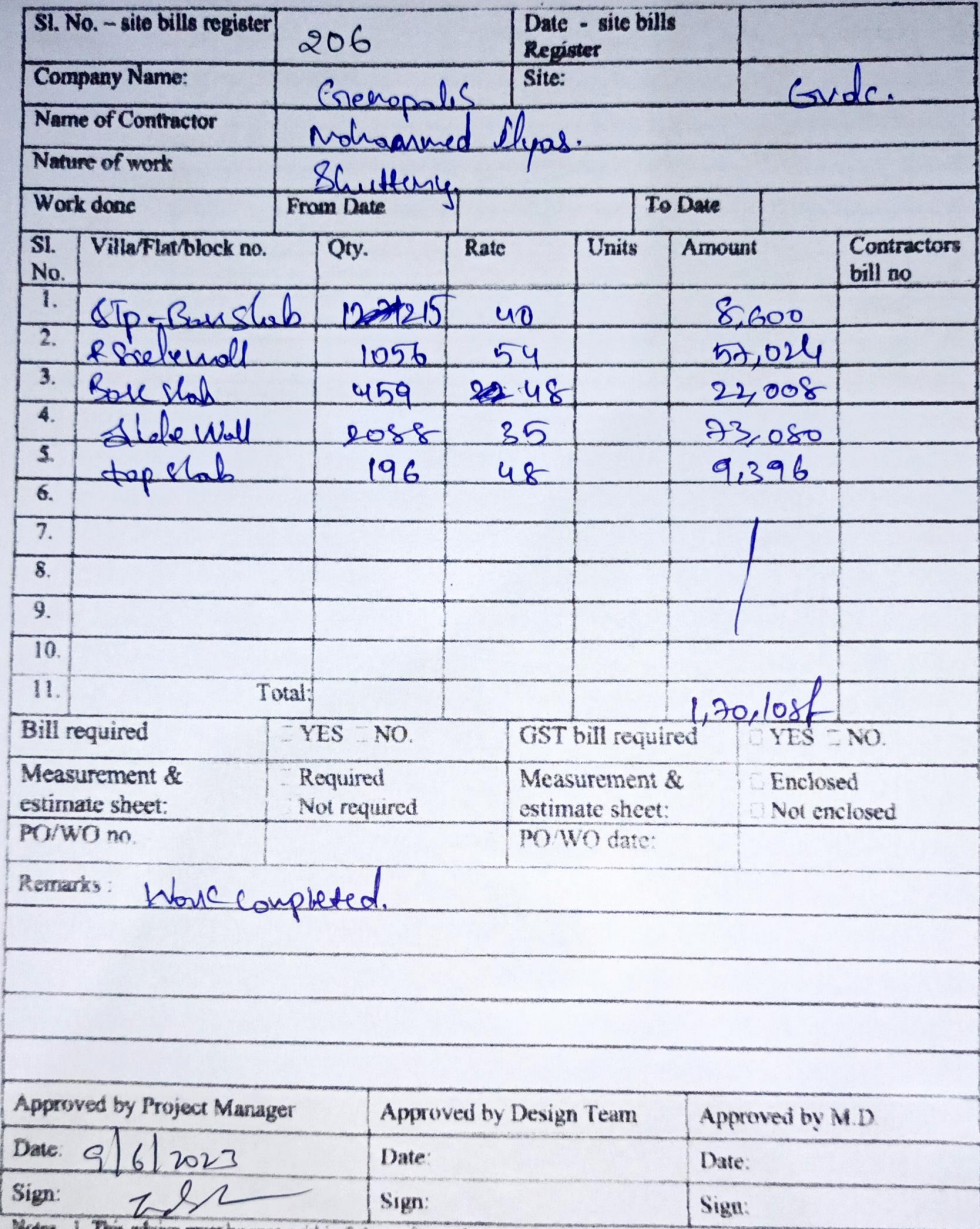 Sl. No. – site bills register 206 Date - site bills Register
Company Name: Genopolis Site: Gvdc.
Name of Contractor Mohammed Ilyas.
Nature of work Shuttering
Work done From Date To Date
Sl. No. Villa/Flat/block no. Qty. Rate Units Amount Contractors bill no
1. STP - Base Slab 215 40 8,600
2. & Sidewall 1056 54 57,024
3. Base slab 459 48 22,008
4. Side Wall 2088 35 73,080
5. top slab 196 48 9,396
6.
7.
8.
9.
10.
11. Total: 1,70,108/-
Bill required YES NO. GST bill required YES NO.
Measurement & estimate sheet: Required Not required Measurement & estimate sheet: Enclosed Not enclosed
PO/WO no. PO/WO date:
Remarks : Work completed.
Approved by Project Manager Approved by Design Team Approved by M.D.
Date: 9/6/2023 Date: Date:
Sign: Sign: Sign: